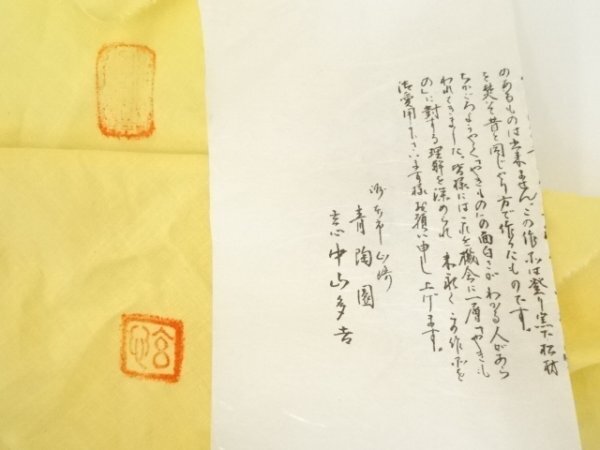 のあるものは出来ません、この作品は登り窯で松材
を焚き昔と同じやり方で作ったものです。
ちかごろようやくやきものの面白さがわかる人があら
われてきました、皆様にはこれを機会に一層「やきも
の」に対する理解を深められ 末永くこの作品を
御愛用下さいます様お願い申し上げます。
山崎
青陶園
中山多吉